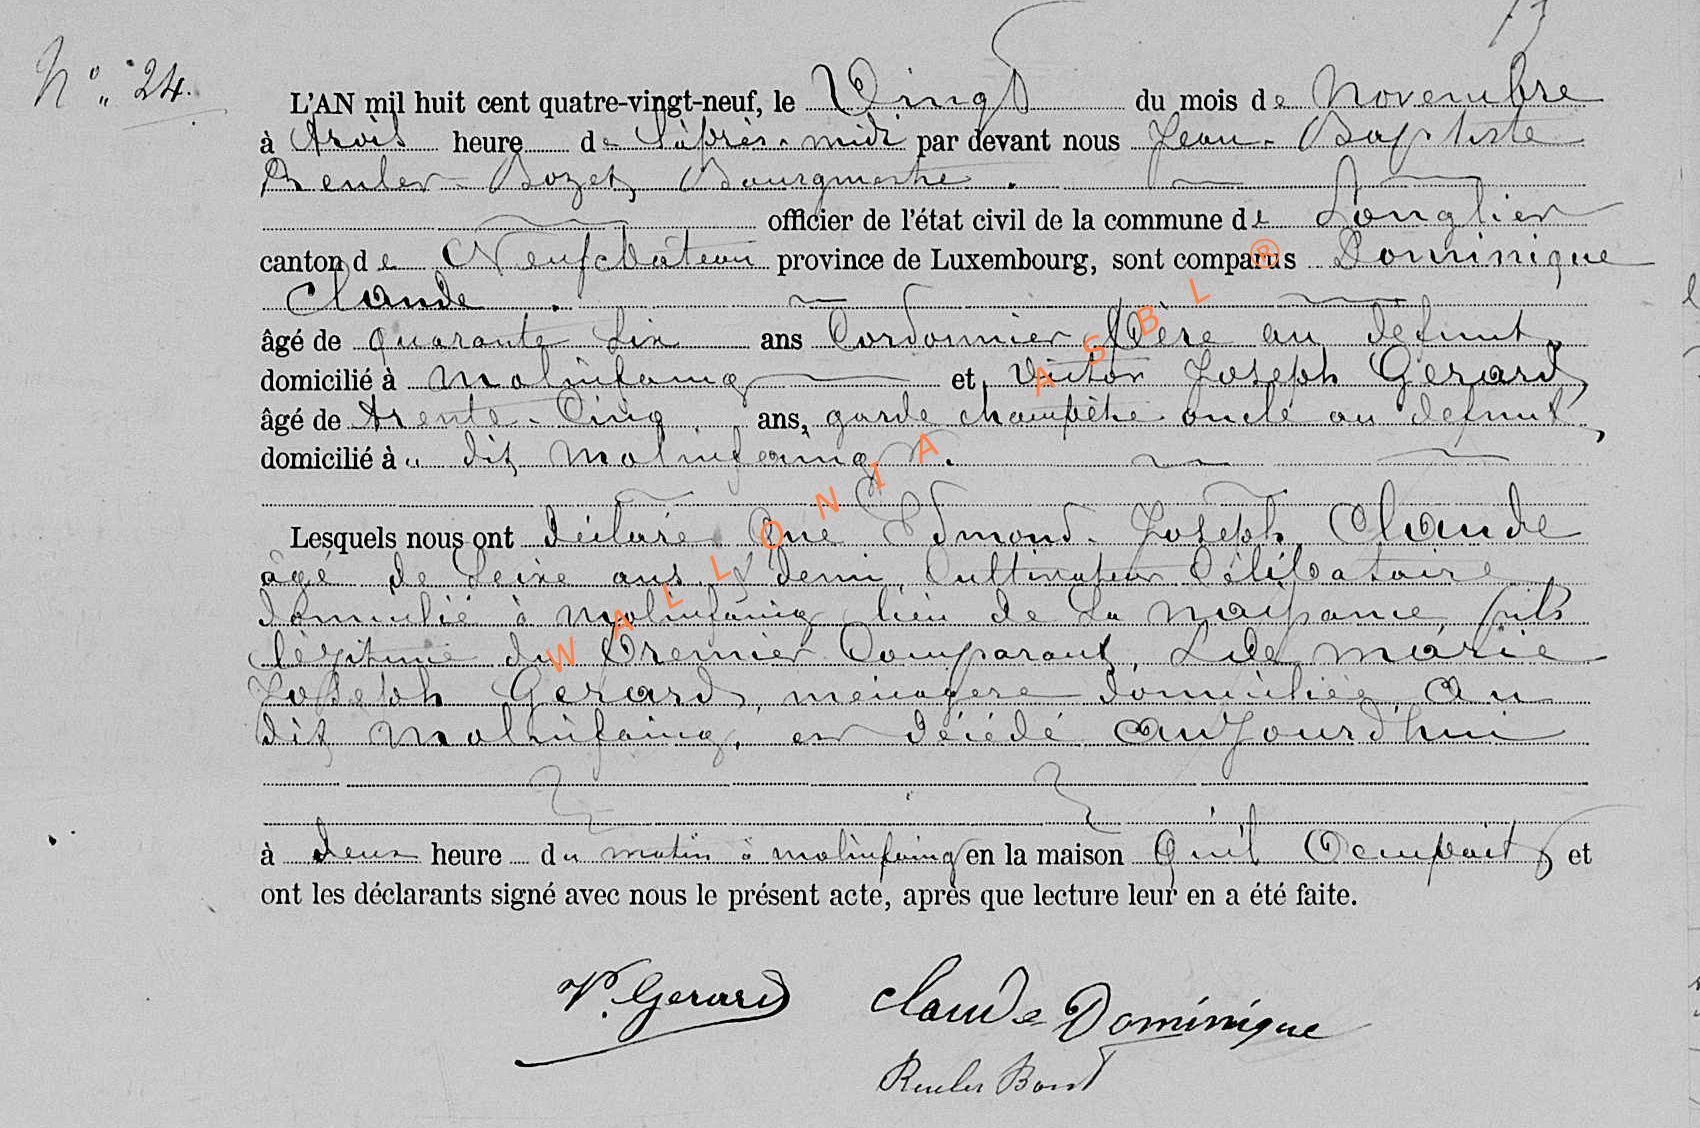 13
N° 24.
L'AN mil huit cent quatre-vingt-neuf, le Vingt du mois de Novembre
à trois heure de l'après-midi par devant nous Jean-Baptiste
Reuler-Bozet, Bourgmestre.
officier de l'état civil de la commune de Longlier
canton de Neufchâteau province de Luxembourg, sont comparus Dominique
Claude.
âgé de quarante six ans Cordonnier, Père au défunt,
domicilié à Molinfaing et Victor Joseph Gerard,
âgé de trente-Cinq ans, garde champêtre oncle au defunt,
domicilié à u dit Molinfaing.
Lesquels nous ont déclaré Que Edmond-Joseph Claude
âgé de Seize ans & demi, Cultivateur Célibataire
domicilié à Molinfaing lieu de Sa naissance, fils
légitime du Premier Comparant, & de Marie
Joseph Gerard, ménagère domiciliée, Au
dit Molinfaing, est décédé aujourd'hui
à deux heure du matin à molinfaing en la maison Qu'il Occupait, et
ont les déclarants signé avec nous le présent acte, après que lecture leur en a été faite.
V. Gerard Claude Dominique
Reuler Bozet
WALLONIA ASBL ®